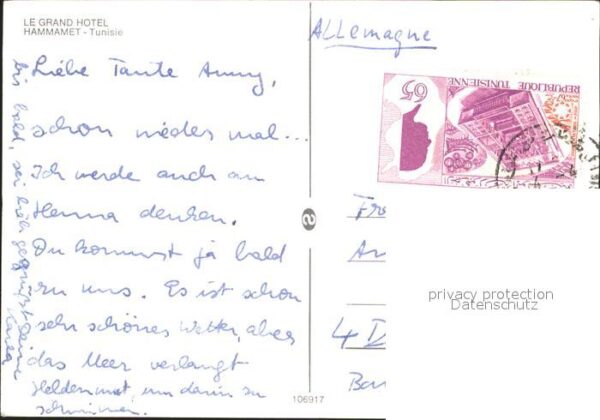 LE GRAND HOTEL
HAMMAMET - Tunisie
Liebe Tante Anny,
schon wieder mal...
Ich werde auch an
Henna denken.
Du kommst ja bald
zu uns. Es ist schon
sehr schönes Wetter, aber
das Meer verlangt
Heldenmut, um darin zu
schwimmen.
Bis bald, sei lieb gegrüßt Deine
Karin
106917
ALLEmagne
REPUBLIQUE TUNISIENNE
65
Fr
An
4 D
privacy protection
Datenschutz